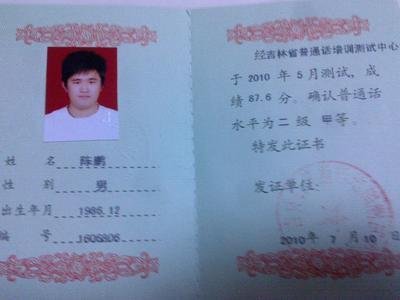 姓 名 陈鹏
性 别 男
出生年月 1986.12
编 号 1606806
经吉林省普通话培训测试中心
于 2010 年 5月测试，成
绩 87.6 分。确认普通话
水平为 二 级 甲等。
特发此证书
发证单位:
2010年 7 月 10 日